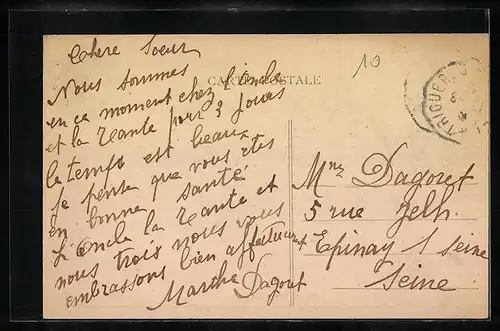 Chere Soeur
10
CARTE POSTALE
Nous sommes
en ce moment chez l'oncle
et la Tante pour 3 jours
le temps est beau
Je pense que vous êtes
en bonne santé
L'oncle la Tante et
nous trois nous vous
embrassons bien affectueus
Marthe Dagout
Mme Dagout
5 rue
Epinay s Seine
Seine